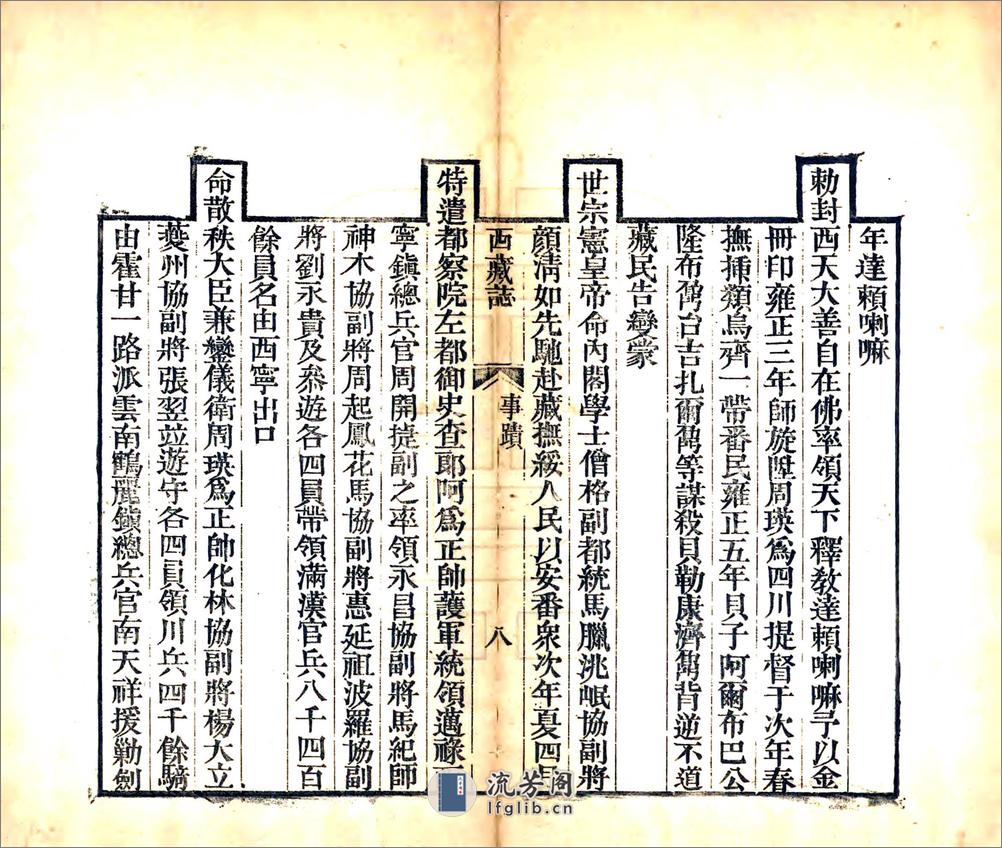 年達賴喇嘛
勅封西天大善自在佛率領天下釋教達賴喇嘛予以金
冊印雍正三年師旋陞周瑛為四川提督于次年春
撫插類烏齊一帶番民雍正五年貝子阿爾布巴公
隆布鼐台吉扎爾鼐等謀殺貝勒康濟鼐背逆不道
藏民告變蒙
世宗憲皇帝命內閣學士僧格副都統馬臘洮岷協副將
顏清如先馳赴藏撫綏人民以安番衆次年夏四月
西藏誌 事蹟 八
特遣都察院左都御史查郎阿為正帥護軍統領邁祿
寧鎮總兵官周開捷副之率領永昌協副將馬紀師
神木協副將周起鳳花馬協副將惠延祖波羅協副
將劉永貴及叅遊各四員帶領滿漢官兵八千四百
餘員名由西寧出口
命散秩大臣兼鑾儀衛周瑛為正帥化林協副將楊大立
夔州協副將張翌並遊守各四員領川兵四千餘騎
由霍甘一路派雲南鶴麗鎮總兵官南天祥援勦劍
流芳阁
lfglib.cn